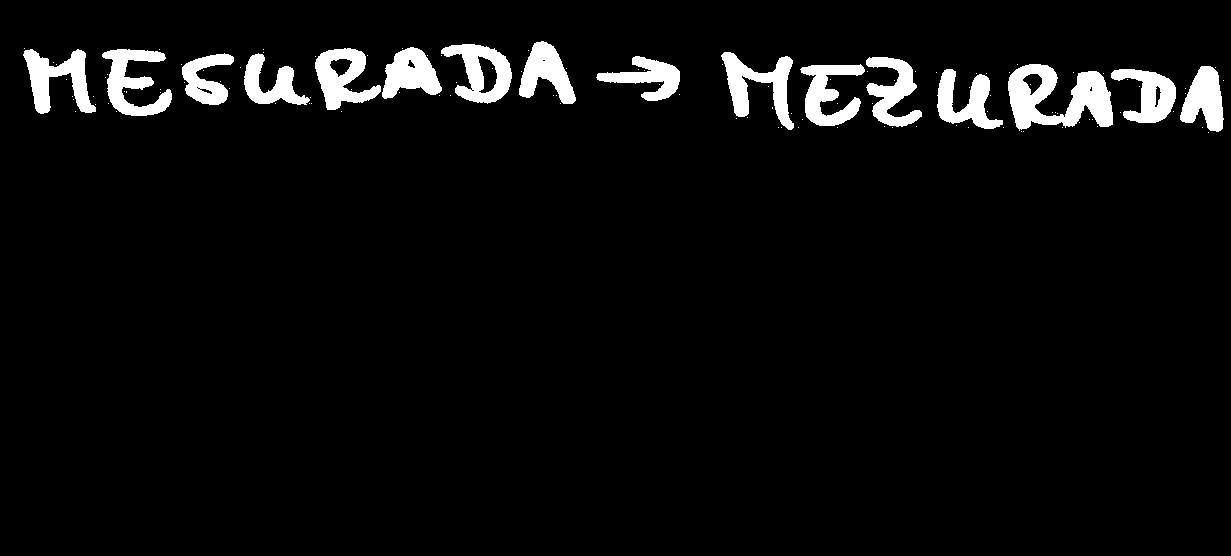 MESURADA → MEZURADA